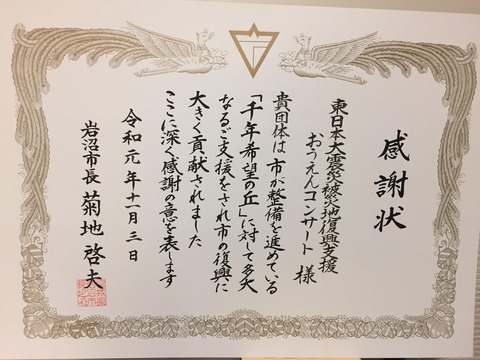 感謝状
東日本大震災被災地復興支援
おうえんコンサート 様
貴団体は市が整備を進めている
「千年希望の丘」に対して多大
なるご支援をされ市の復興に
大きく貢献されました
ここに深く感謝の意を表します
令和元年十一月三日
岩沼市長 菊地啓夫